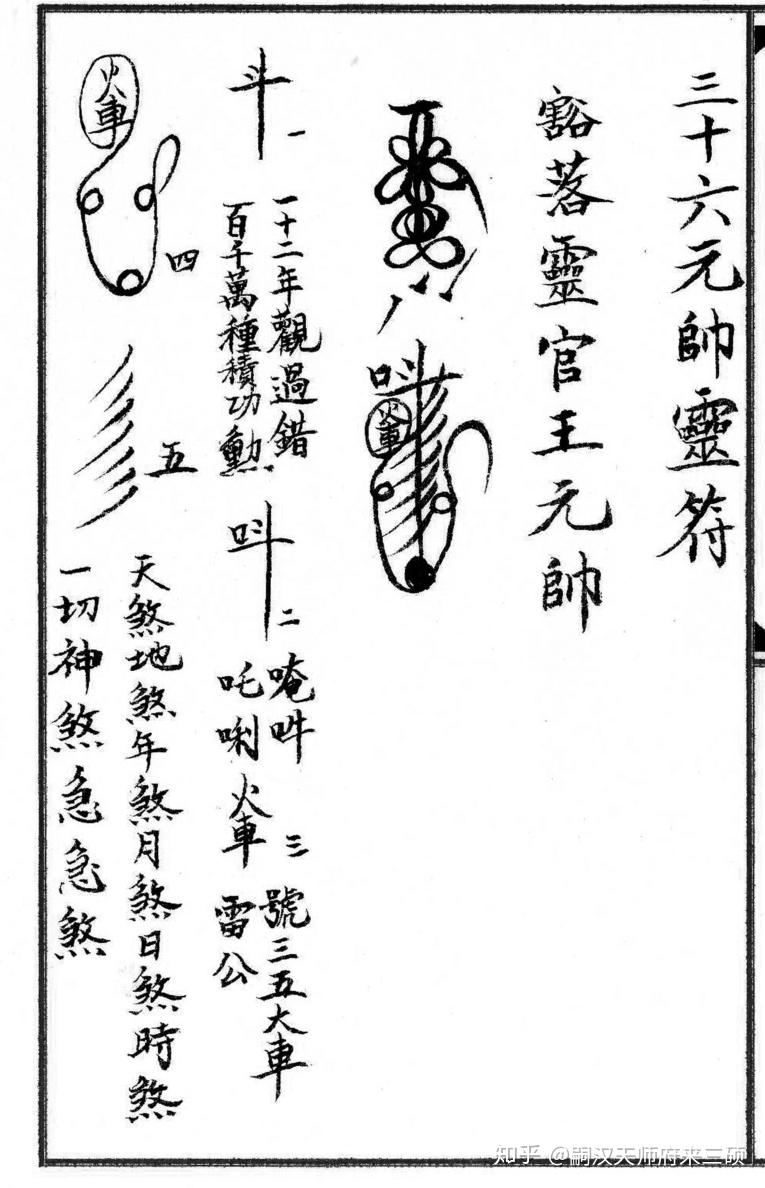 三十六元帥靈符
豁落靈官王元帥
㕚
火車
斗 一
一十二年觀過錯
百千萬種積功勳
㘰 二
唵吽
吒唎
火車 三
號三五大車
雷公
火車
四
五
天煞地煞年煞月煞日煞時煞
一切神煞急急煞
知乎 @嗣汉天师府来三硕